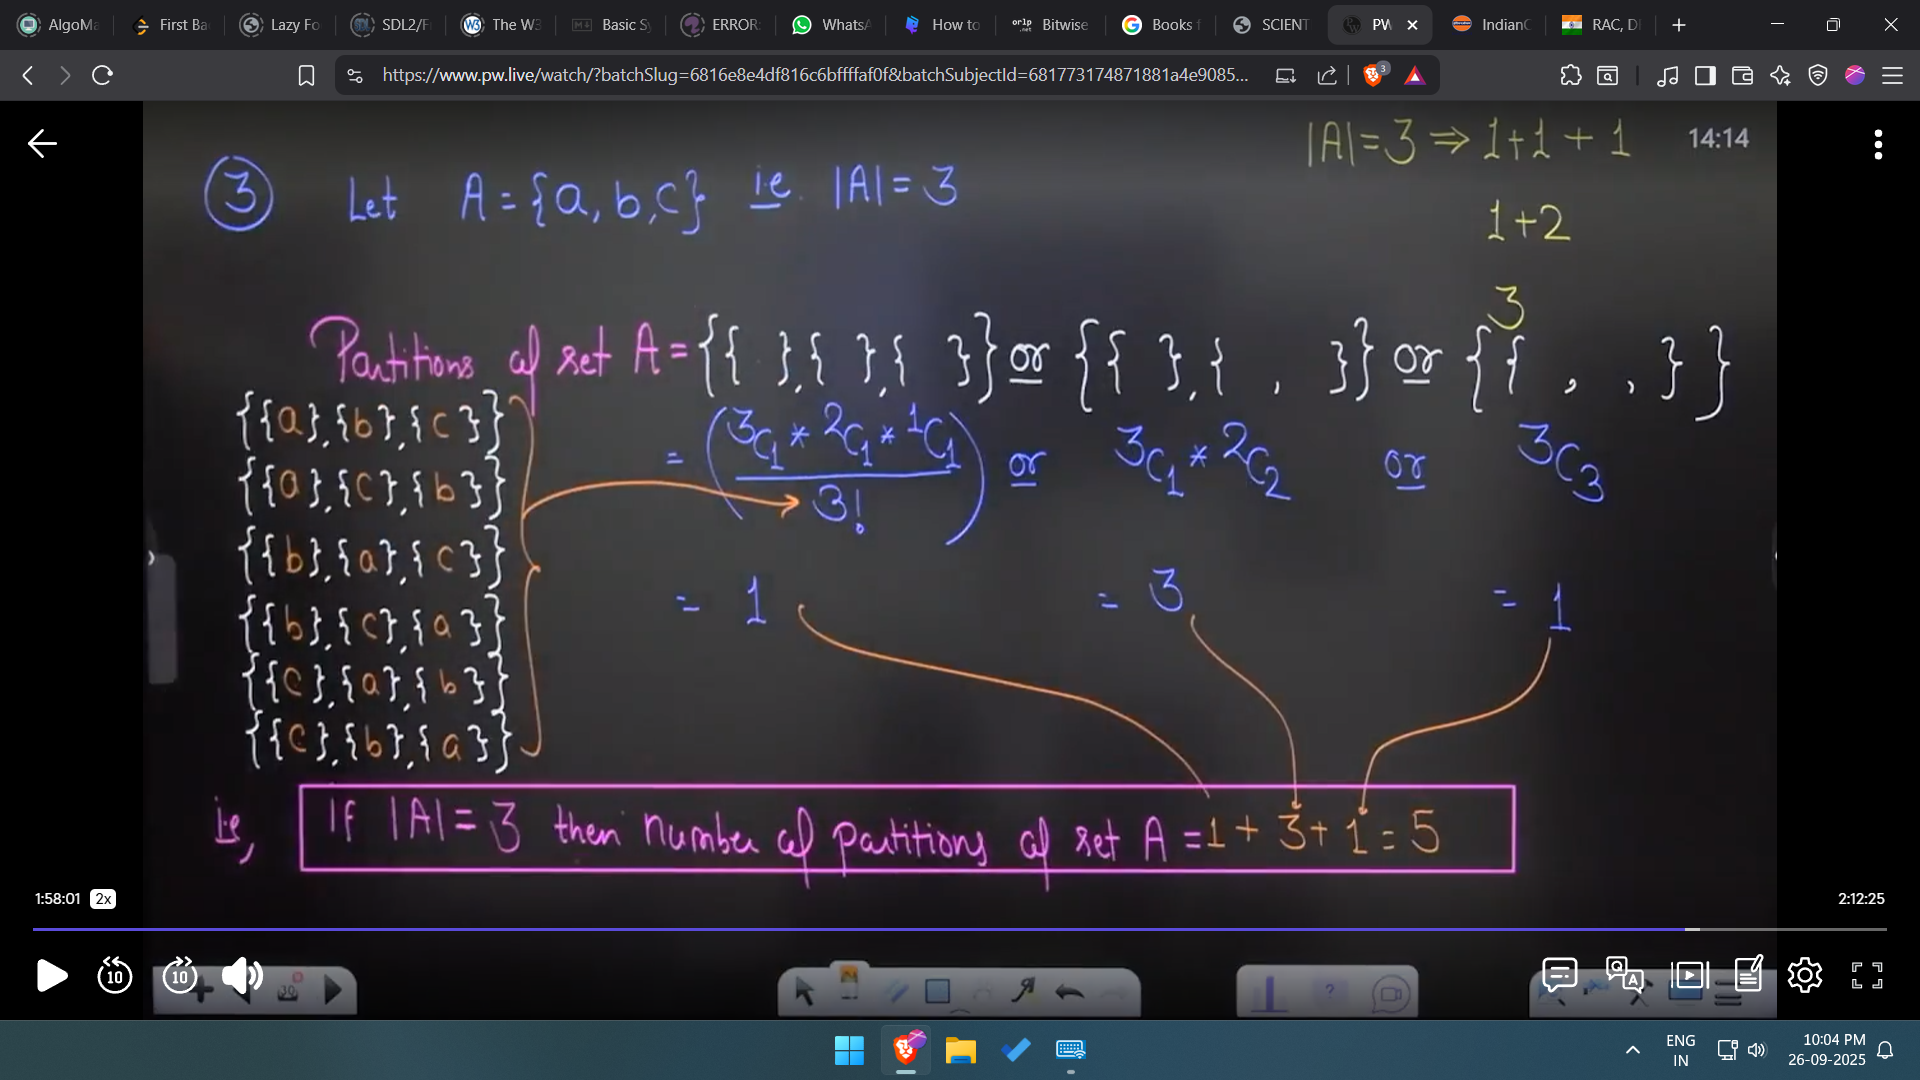 AlgoMa
First Ba
Lazy Fo
SDL2/F
The W3
Basic Sy
ERROR:
WhatsA
How to
orlp .net
Bitwise
Books f
SCIENT
PW
IndianC
RAC, D
https://www.pw.live/watch/?batchSlug=6816e8e4df816c6bffffaf0f&batchSubjectId=681773174871881a4e9085...
3
|A|=3 ⇒ 1+1+1
14:14
1+2
3
③ Let A={a,b,c} i.e. |A|=3
Partitions of set A={{ },{ },{ }} or {{ },{ , }} or {{ , , }}
= (3C1 * 2C1 * 1C1 / 3!) or 3C1 * 2C2 or 3C3
{{a},{b},{c}}
{{a},{c},{b}}
{{b},{a},{c}}
{{b},{c},{a}}
{{c},{a},{b}}
{{c},{b},{a}}
= 1 = 3 = 1
ie, If |A|=3 then number of partitions of set A =1+3+1=5
1:58:01 2x
2:12:25
10 10
30
?
ENG
IN
10:04 PM
26-09-2025